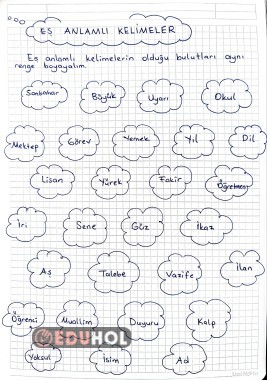 EŞ ANLAMLI KELİMELER
Eş anlamlı kelimelerin olduğu bulutları aynı
renge boyayalım.
Sonbahar Büyük Uyarı Okul
Mektep Görev Yemek Yıl Dil
Lisan Yürek Fakir Öğretmen
İri Sene Güz İkaz
Aş Talebe Vazife İlan
Öğrenci Muallim Duyuru Kalp
EDUHOL
Yoksul İsim Ad